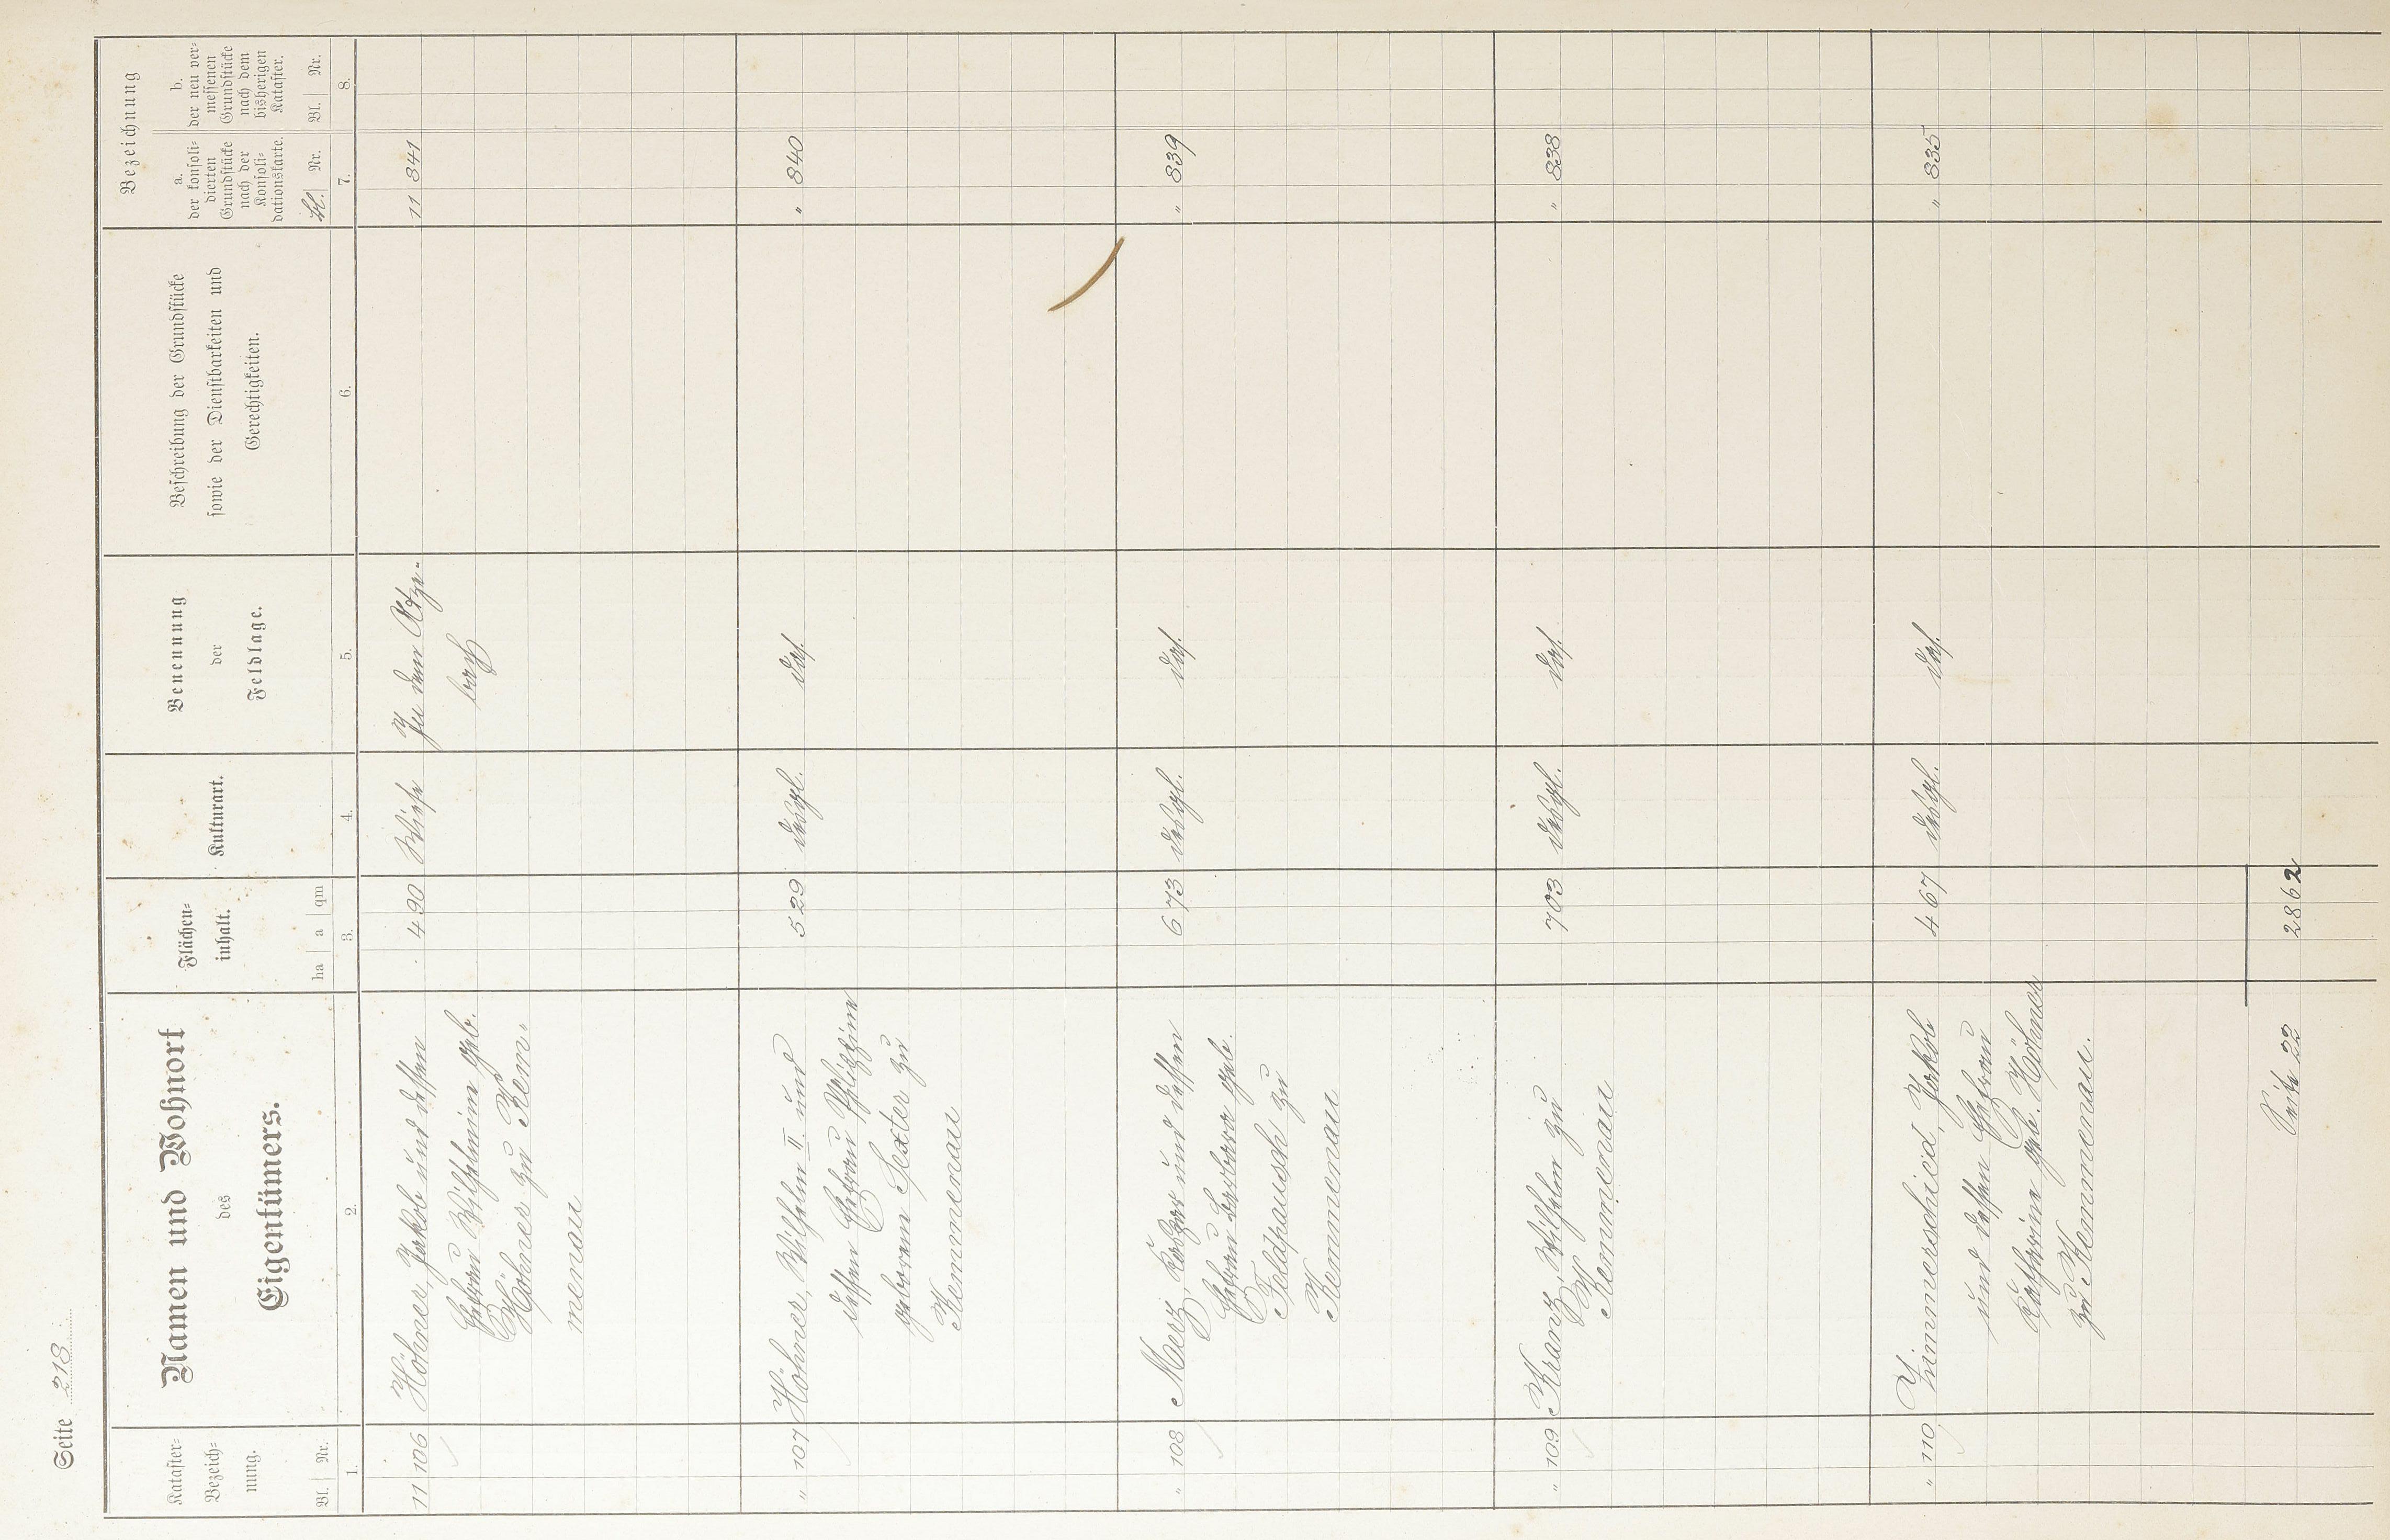 Seite 218
Kataster=
Bezeich=
nung.
Bl. Nr.
1.
Namen und Wohnort
des
Eigentümers.
2.
Flächen=
inhalt.
ha a qm
3.
Kulturart.
4.
Benennung
der
Feldlage.
5.
Beschreibung der Grundstücke
sowie der Dienstbarkeiten und
Gerechtigkeiten.
6.
Bezeichnung
a.
der konsoli=
dierten
Grundstücke
nach der
Konsoli=
dationskarte.
Bl. Nr.
7.
b.
der neu ver=
messenen
Grundstücke
nach dem
bisherigen
Kataster.
Bl. Nr.
8.
11 106 Höhner, Jakob und dessen 4 90 Wiese In der 11 841
Ehefrau Wilhelmine geb. bach
Höhner zu Kem-
menau
" 107 Höhner, Wilhelm II und 5 29 desgl. das. " 840
dessen Ehefrau Philippine
geborene Sexter zu
Kemmenau
" 108 Merz, und dessen 6 73 desgl. das. " 839
Ehefrau Barbara geb.
Feldpausch zu
Kemmenau
" 109 Kranz, Wilhelm zu 7 03 desgl. das. " 838
Kemmenau
" 110 Zimmerschied, Jakob 4 67 desgl. das. " 835
und dessen Ehefrau
Katharine geb. Höhner
zu Kemmenau.
Seite 22 28 62